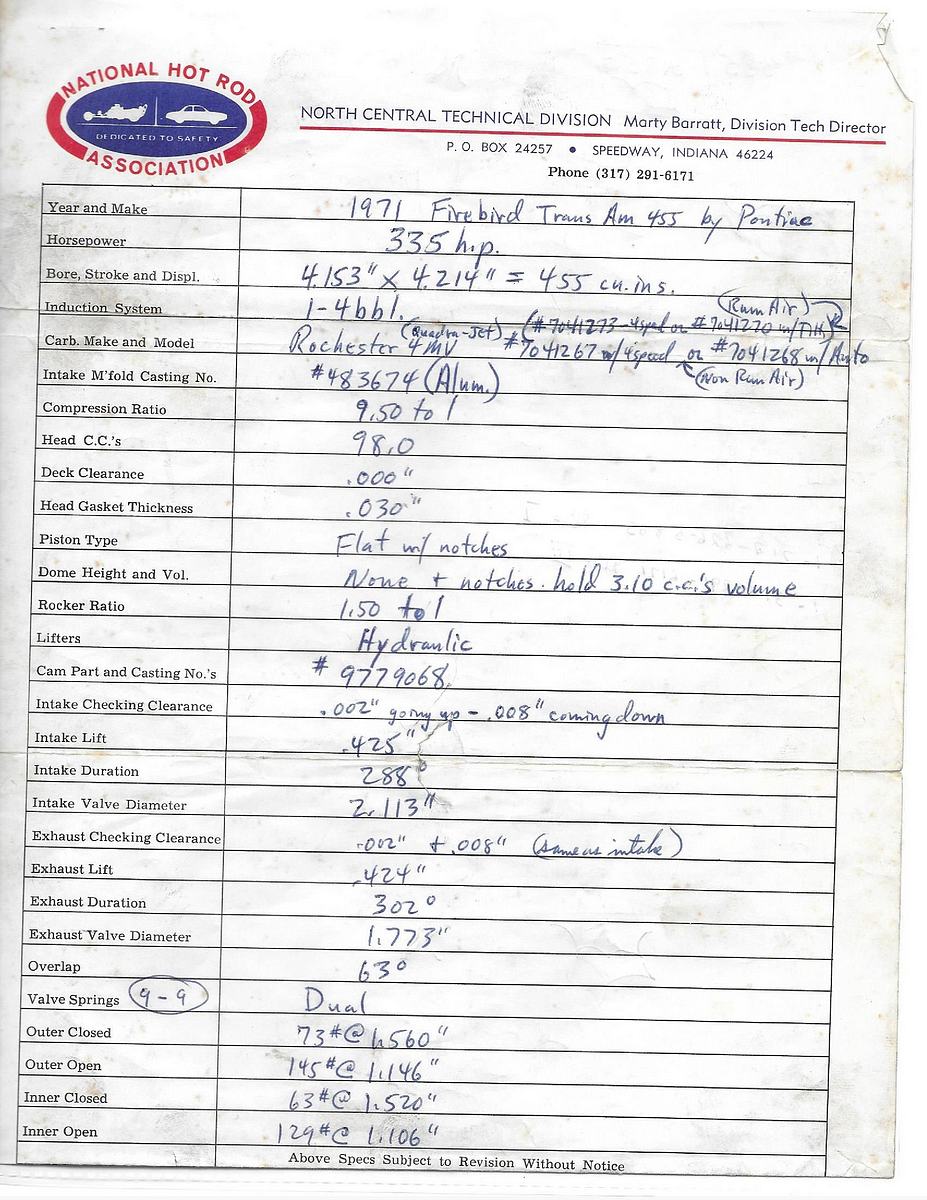 NATIONAL HOT ROD
DEDICATED TO SAFETY
ASSOCIATION
NORTH CENTRAL TECHNICAL DIVISION Marty Barratt, Division Tech Director
P. O. BOX 24257 • SPEEDWAY, INDIANA 46224
Phone (317) 291-6171
Year and Make 1971 Firebird Trans Am 455 by Pontiac
Horsepower 335 h.p.
Bore, Stroke and Displ. 4.153" x 4.214" = 455 cu.ins.
Induction System 1-4bbl. (Ram Air)
(Quadra-Jet) (#7041273-4sped or #7041270 w/T.H.)
Carb. Make and Model Rochester 4MV #7041267 w/4speed or #7041268 w/Auto
(Non Ram Air)
Intake M'fold Casting No. #483674 (Alum.)
Compression Ratio 9.50 to 1
Head C.C.'s 98.0
Deck Clearance .000"
Head Gasket Thickness .030"
Piston Type Flat w/ notches
Dome Height and Vol. None + notches hold 3.10 c.c.'s volume
Rocker Ratio 1.50 to 1
Lifters Hydraulic
Cam Part and Casting No.'s # 9779068
Intake Checking Clearance .002" going up - .008" coming down
Intake Lift .425"
Intake Duration 288°
Intake Valve Diameter 2.113"
Exhaust Checking Clearance .002" + .008" (same as intake)
Exhaust Lift .424"
Exhaust Duration 302°
Exhaust Valve Diameter 1.773"
Overlap 63°
Valve Springs 9-9 Dual
Outer Closed 73#@ 1.560"
Outer Open 145#@ 1.146"
Inner Closed 63#@ 1.520"
Inner Open 129#@ 1.106"
Above Specs Subject to Revision Without Notice